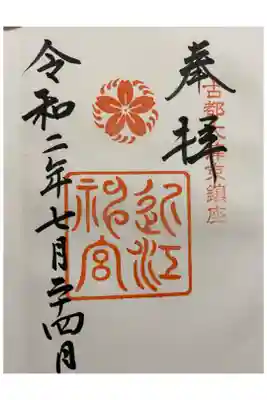 古都大津京鎮座
奉拝
近江神宮
令和二年七月二十四日